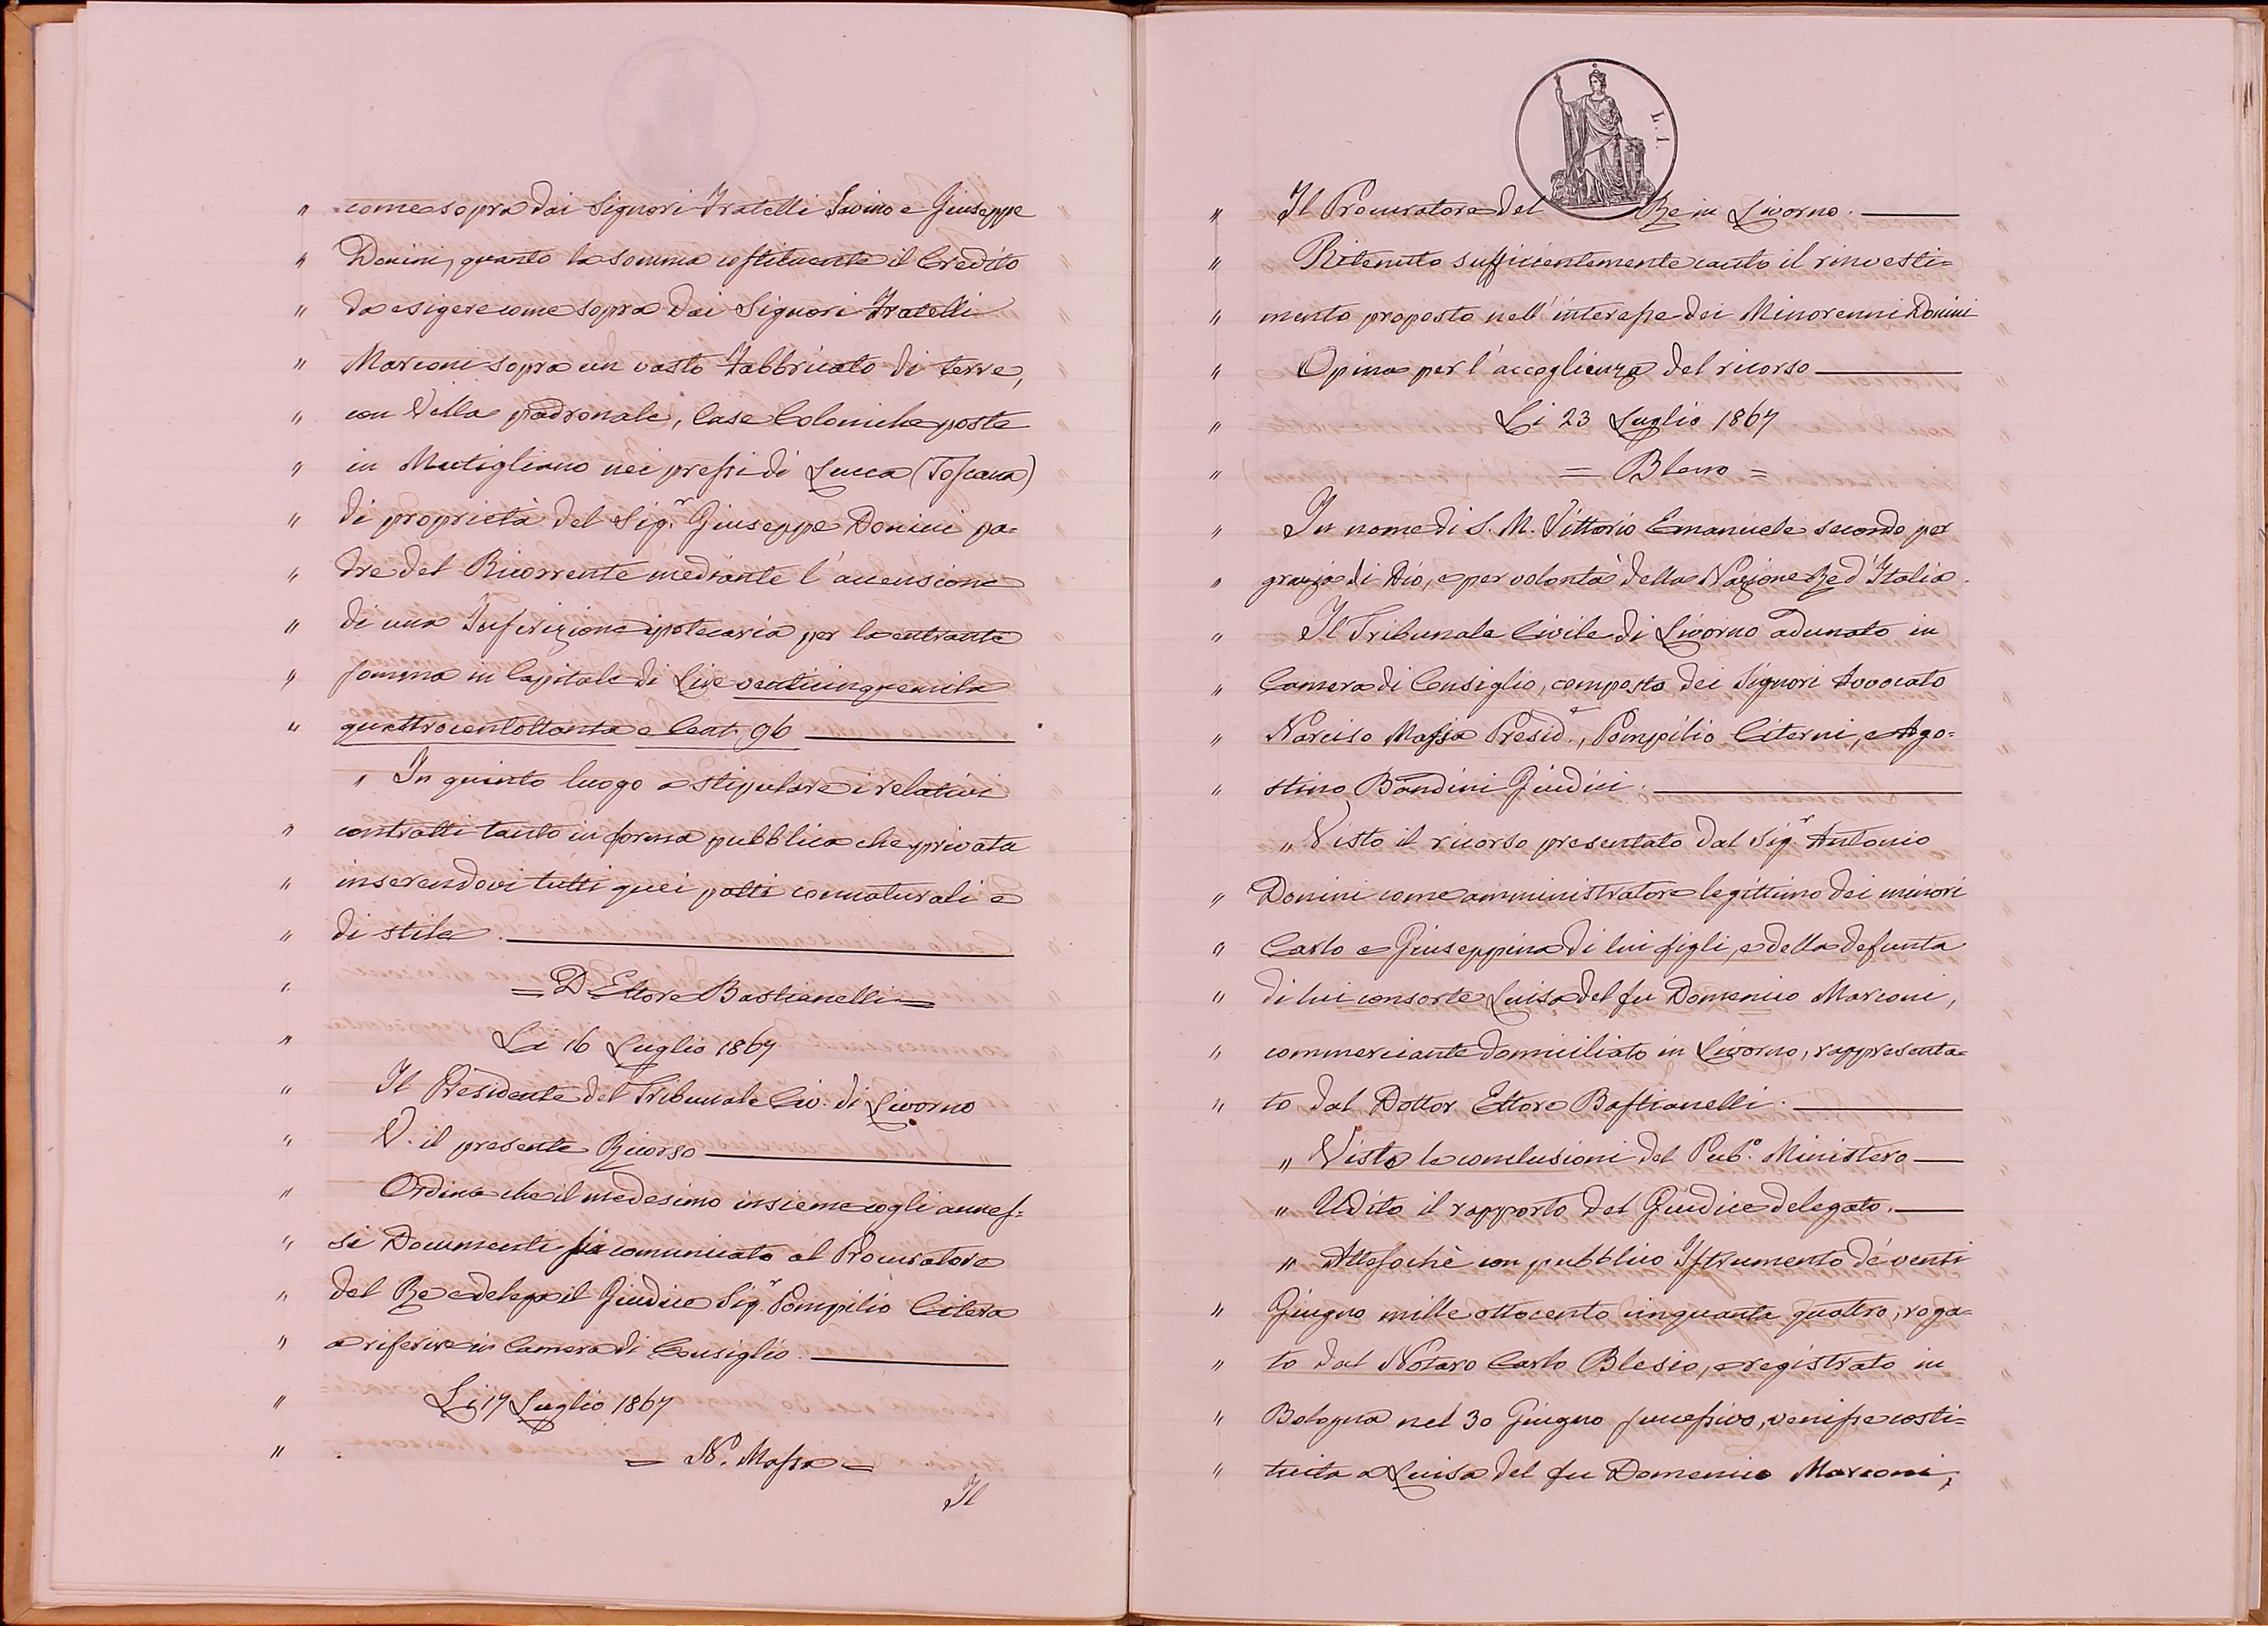 " come sopra dai Signori Fratelli Savino e Giuseppe
" Donini, quanto la somma costituente il Credito
" da esigere come sopra dai Signori Fratelli
" Marconi sopra un vasto Fabbricato di terre,
" con Villa padronale, Case Coloniche poste
" in Mutigliano nei pressi di Lucca (Toscana)
" di proprietà del Sigr. Giuseppe Donini pa=
" dre del Ricorrente mediante l'accensione
" di una Inscrizione ipotecaria per la entrante
" somma in Capitale di Lire venticinquemila
" quattrocentottanta e Cent. 96
" In quinto luogo a stipulare i relativi
" contratti tanto in forma pubblica che privata
" inserendovi tutti quei patti connaturali e
" di stile.
" = D Ettore Bastianelli =
" Li 16 Luglio 1867
" Il Presidente del Tribunale Civ. di Livorno
" V. il presente Ricorso
" Ordina che il medesimo insieme cogli annes=
" si Documenti sia comunicato al Procuratore
" del Re e delega il Giudice Sigr. Pompilio
" a riferire in Camera di Consiglio.
" Li 17 Luglio 1867
" = N. Massa =
Il
L. 1.
" Il Procuratore del Re in Livorno.
" Ritenuto sufficientemente cauto il rinvesti=
" mento proposto nell'interesse dei Minorenni Donini
" Opina per l'accoglienza del ricorso
" Li 23 Luglio 1867
" = =
" In nome di S. M. Vittorio Emanuele secondo per
" grazia di Dio, e per volontà della Nazione Re d'Italia.
" Il Tribunale Civile di Livorno adunato in
" Camera di Consiglio, composto dei Signori Avvocato
" Narciso Massa Preside., Pompilio Citerni, e Ago=
" stino Bandini Giudici.
" Visto il ricorso presentato dal Sigr. Antonio
" Donini come amministratore legittimo dei minori
" Carlo e Giuseppina di lui figli, e della defunta
" di lui consorte Luisa del fu Domenico Marconi,
" commerciante domiciliato in Livorno, rappresenta=
" to dal Dottor Ettore Bastianelli.
" Viste le conclusioni del Pubo. Ministero
" Udito il rapporto del Giudice delegato.
" Attesochè con pubblico Istrumento de' venti
" Giugno mille ottocento cinquanta quattro, roga=
" to dal Notaro Carlo Blesio, e registrato in
" Bologna nel 30 Giugno successivo, venisse costi=
" tuita a Luisa del fu Domenico Marconi,